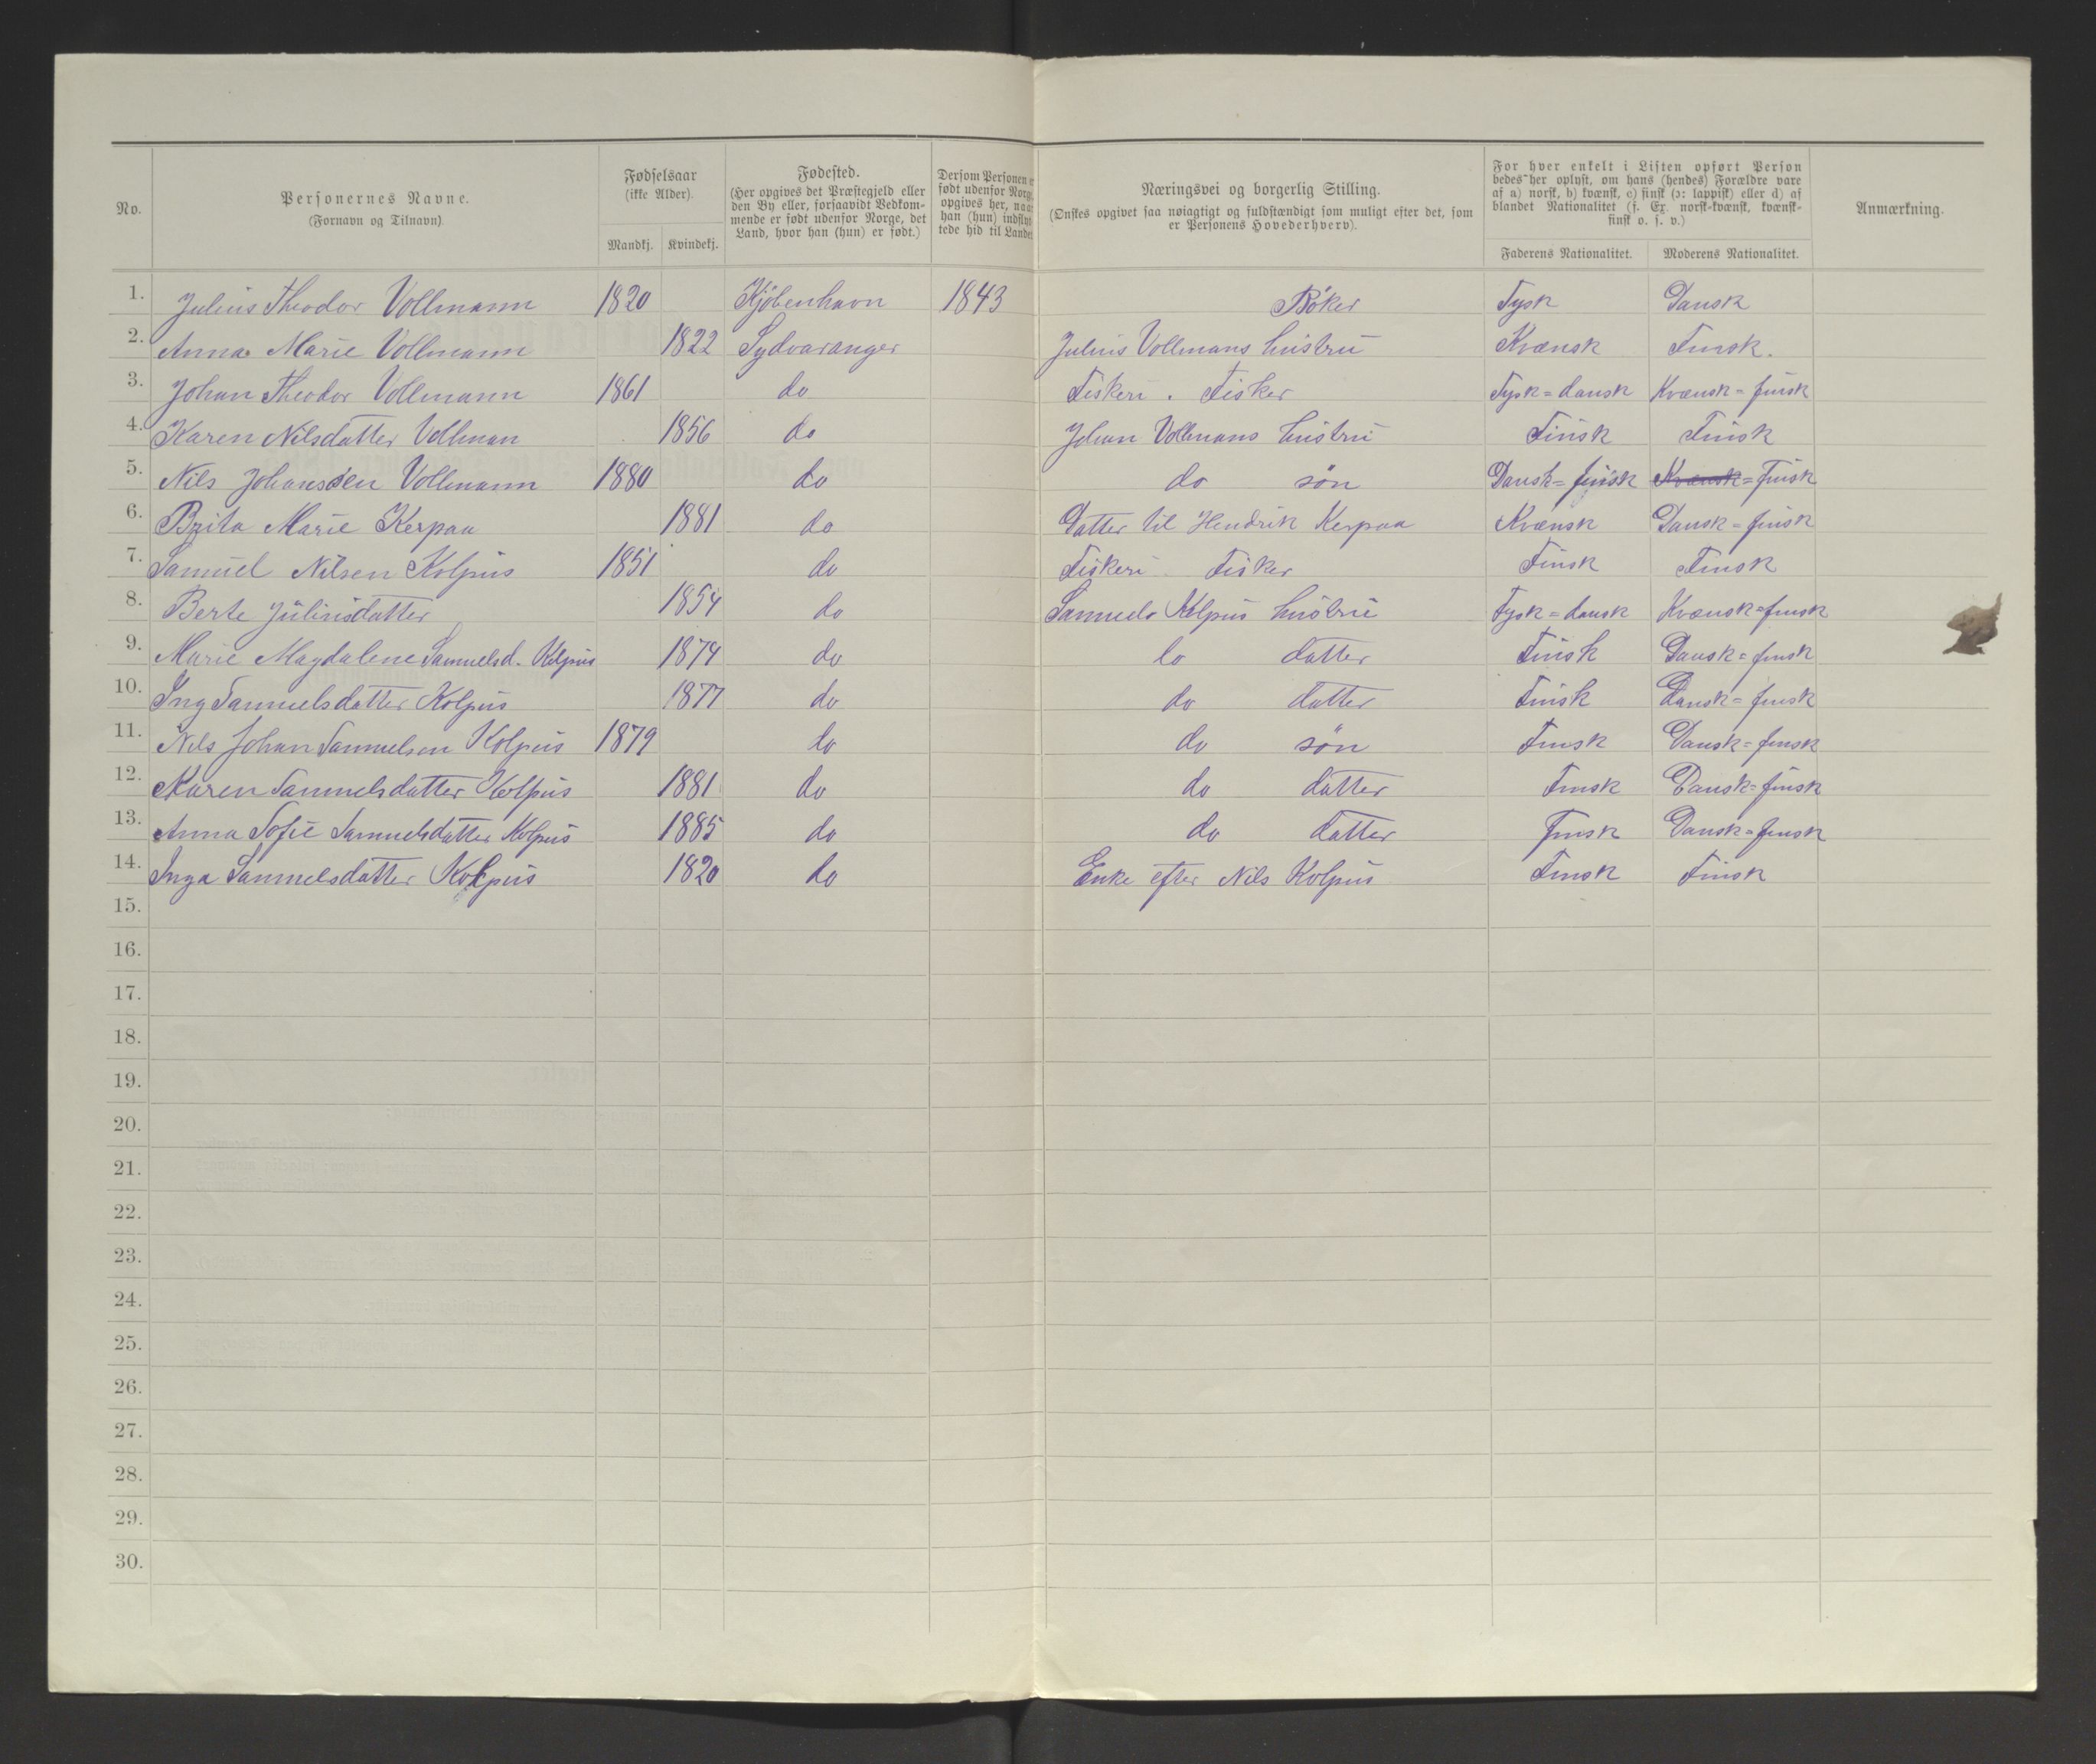 No.
Personernes Navne.
(Fornavn og Tilnavn).
Fødselsaar
(ikke Alder).
Mandkj. Kvindekj.
Fødested.
(Her opgives det Præstegjeld eller
den By eller, forsaavidt Vedkom-
mende er født udenfor Norge, det
Land, hvor han (hun) er født.)
Dersom Personen er
født udenfor Norge,
opgives her, naar
han (hun) indflyt-
tede hid til Landet.
Næringsvei og borgerlig Stilling.
(Ønskes opgivet saa nøiagtigt og fuldstændigt som muligt efter det, som
er Personens Hovederhverv).
For hver enkelt i Listen opført Person
bedes her oplyst, om hans (hendes) Forældre vare
af a) norsk, b) kvænsk, c) finsk (ɔ: lappisk) eller d) af
blandet Nationalitet (f. Ex. norsk-kvænsk, kvænsk-
finsk o. s. v.)
Faderens Nationalitet. Moderens Nationalitet.
Anmærkning.
1. Julius Theodor Vollmann 1820 Kjöbenhavn 1843 Böker Tysk Dansk
2. Anna Marie Vollmann 1822 Sydvaranger Julius Vollmans hustru Kvænsk Finsk.
3. Johan Theodor Vollmann 1861 do Fiskeri. Fisker Tysk=dansk Kvænsk=finsk
4. Karen Nilsdatter Vollman 1856 do Johan Vollmans hustru Finsk Finsk
5. Nils Johansen Vollmann 1880 do do sön Dansk=finsk Kvænsk=Finsk
6. Brita Marie Kerpaa 1881 do Datter til Hendrik Kerpaa Kvænsk Dansk=finsk
7. Samuel Nilsen Kolpus 1851 do Fiskeri Fisker Finsk Finsk
8. Berte Juliusdatter 1854 do Samuels Kolpus hustru Tysk=dansk Kvænsk=finsk
9. Marie Magdalene Samuelsd. Kolpus 1874 do do datter Finsk Dansk=finsk
10. Ing Samuelsdatter Kolpus 1877 do do datter Finsk Dansk=finsk
11. Nils Johan Samuelsen Kolpus 1879 do do sön Finsk Dansk=finsk
12. Karen Samuelsdatter Kolpus 1881 do do datter Finsk Dansk=finsk
13. Anna Sofie Samuelsdatter Kolpus 1885 do do datter Finsk Dansk=finsk
14. Inga Samuelsdatter Kolpus 1820 do Enke efter Nils Kolpus Finsk Finsk
15.
16.
17.
18.
19.
20.
21.
22.
23.
24.
25.
26.
27.
28.
29.
30.